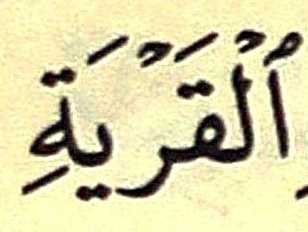 ٱلْقَرْيَةِ